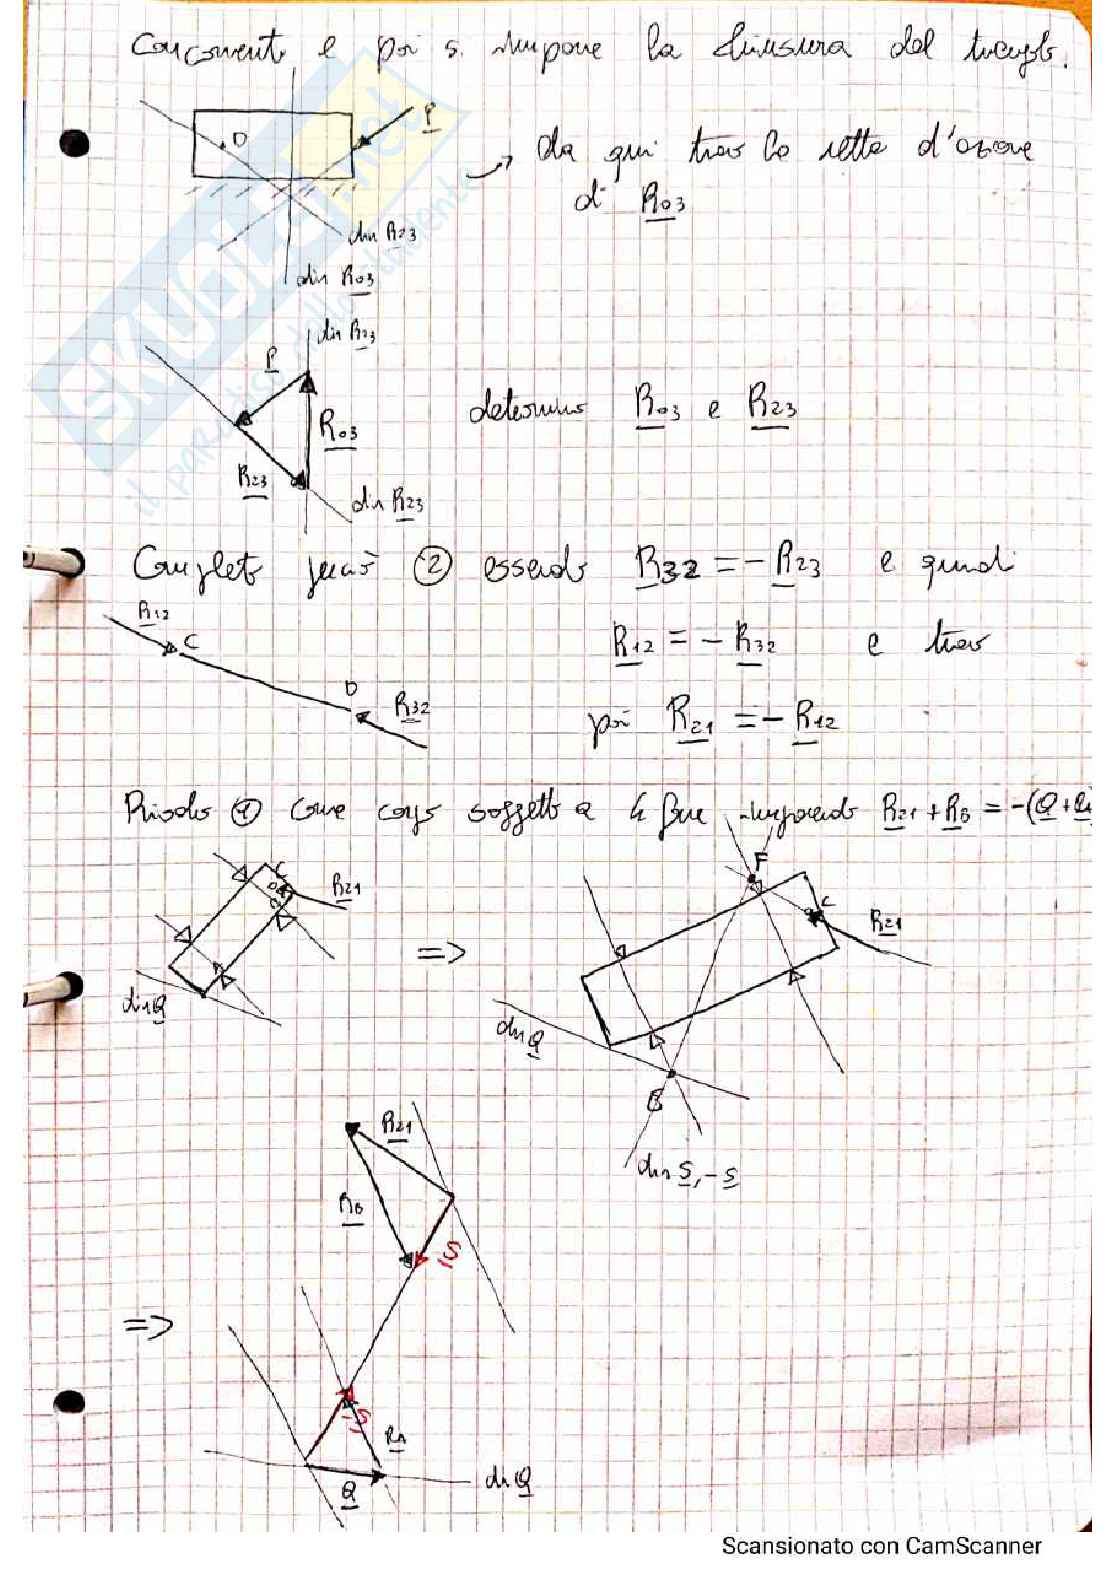 concorrenti e poi si impone la chiusura del triangolo.
D
P
da qui trovo la retta d'azione
di R03
dir R23
dir R03
dir R23
P
R03
R23
dir R23
determino R03 e R23
Completo però ② essendo R32 = - R23 e quindi
R12
C
R12 = - R32 e trovo
D
R32
poi R21 = - R12
Risolvo ① come corpo soggetto a 4 forze imponendo R21 + RB = -(Q + RA
C
R21
dir Q
=>
F
C
R21
dir Q
B
dir S, -S
R21
RB
S
=>
-S
RA
Q
dir Q
SKUOLA.net
il paradiso dello studente
Scansionato con CamScanner